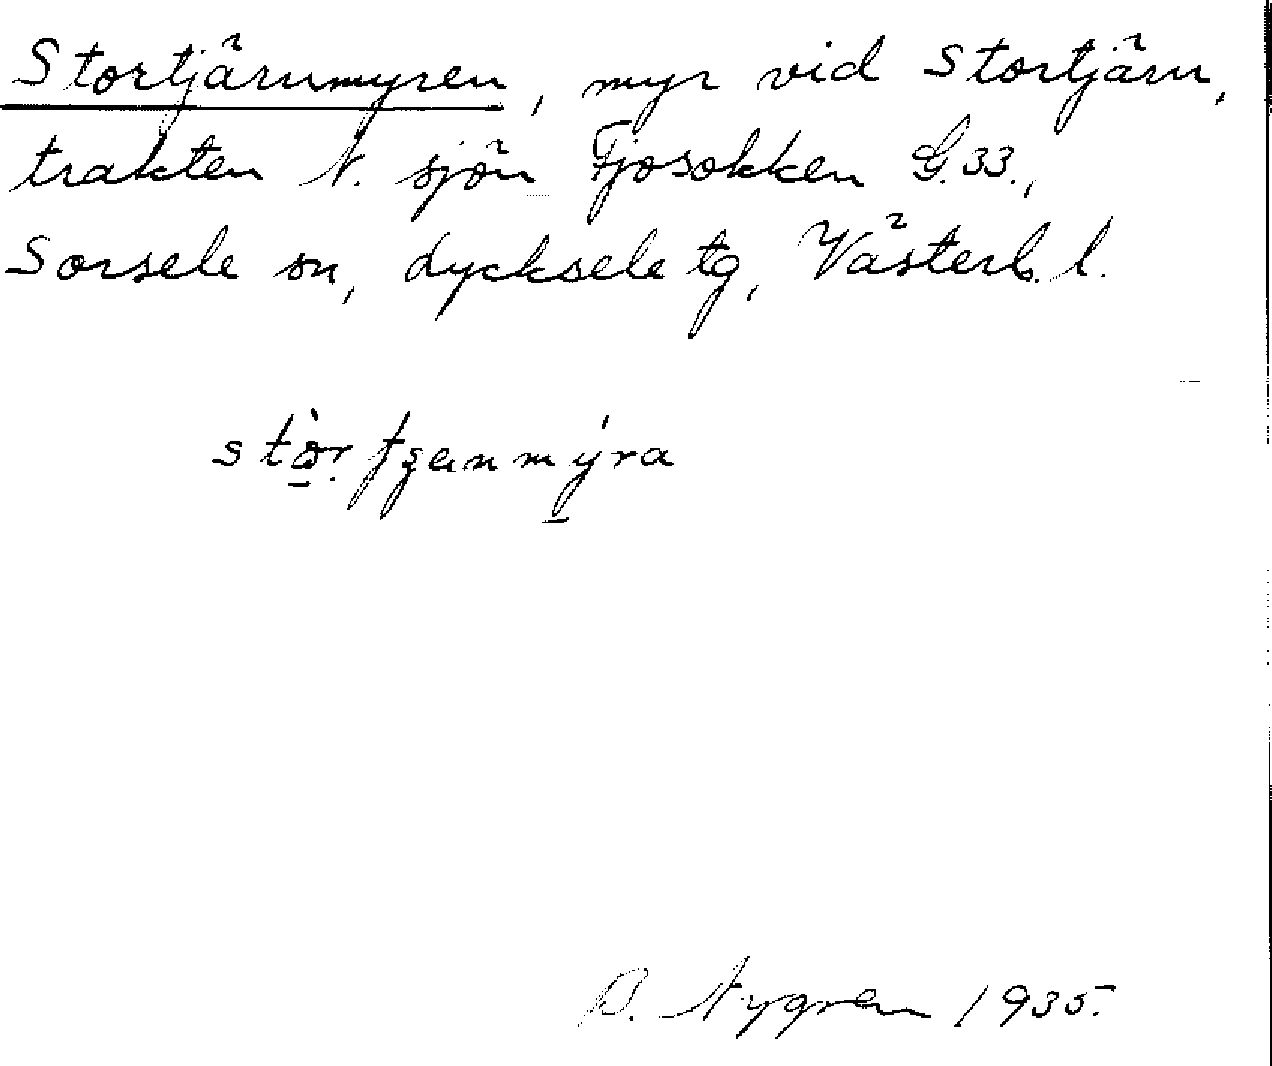 Stortjärnmyren, myr vid Stortjärn,
trakten N. sjön Fjosokken G.33.,
Sorsele sn, Lycksele tg, Västerb. l.
O. Nygren 1935.